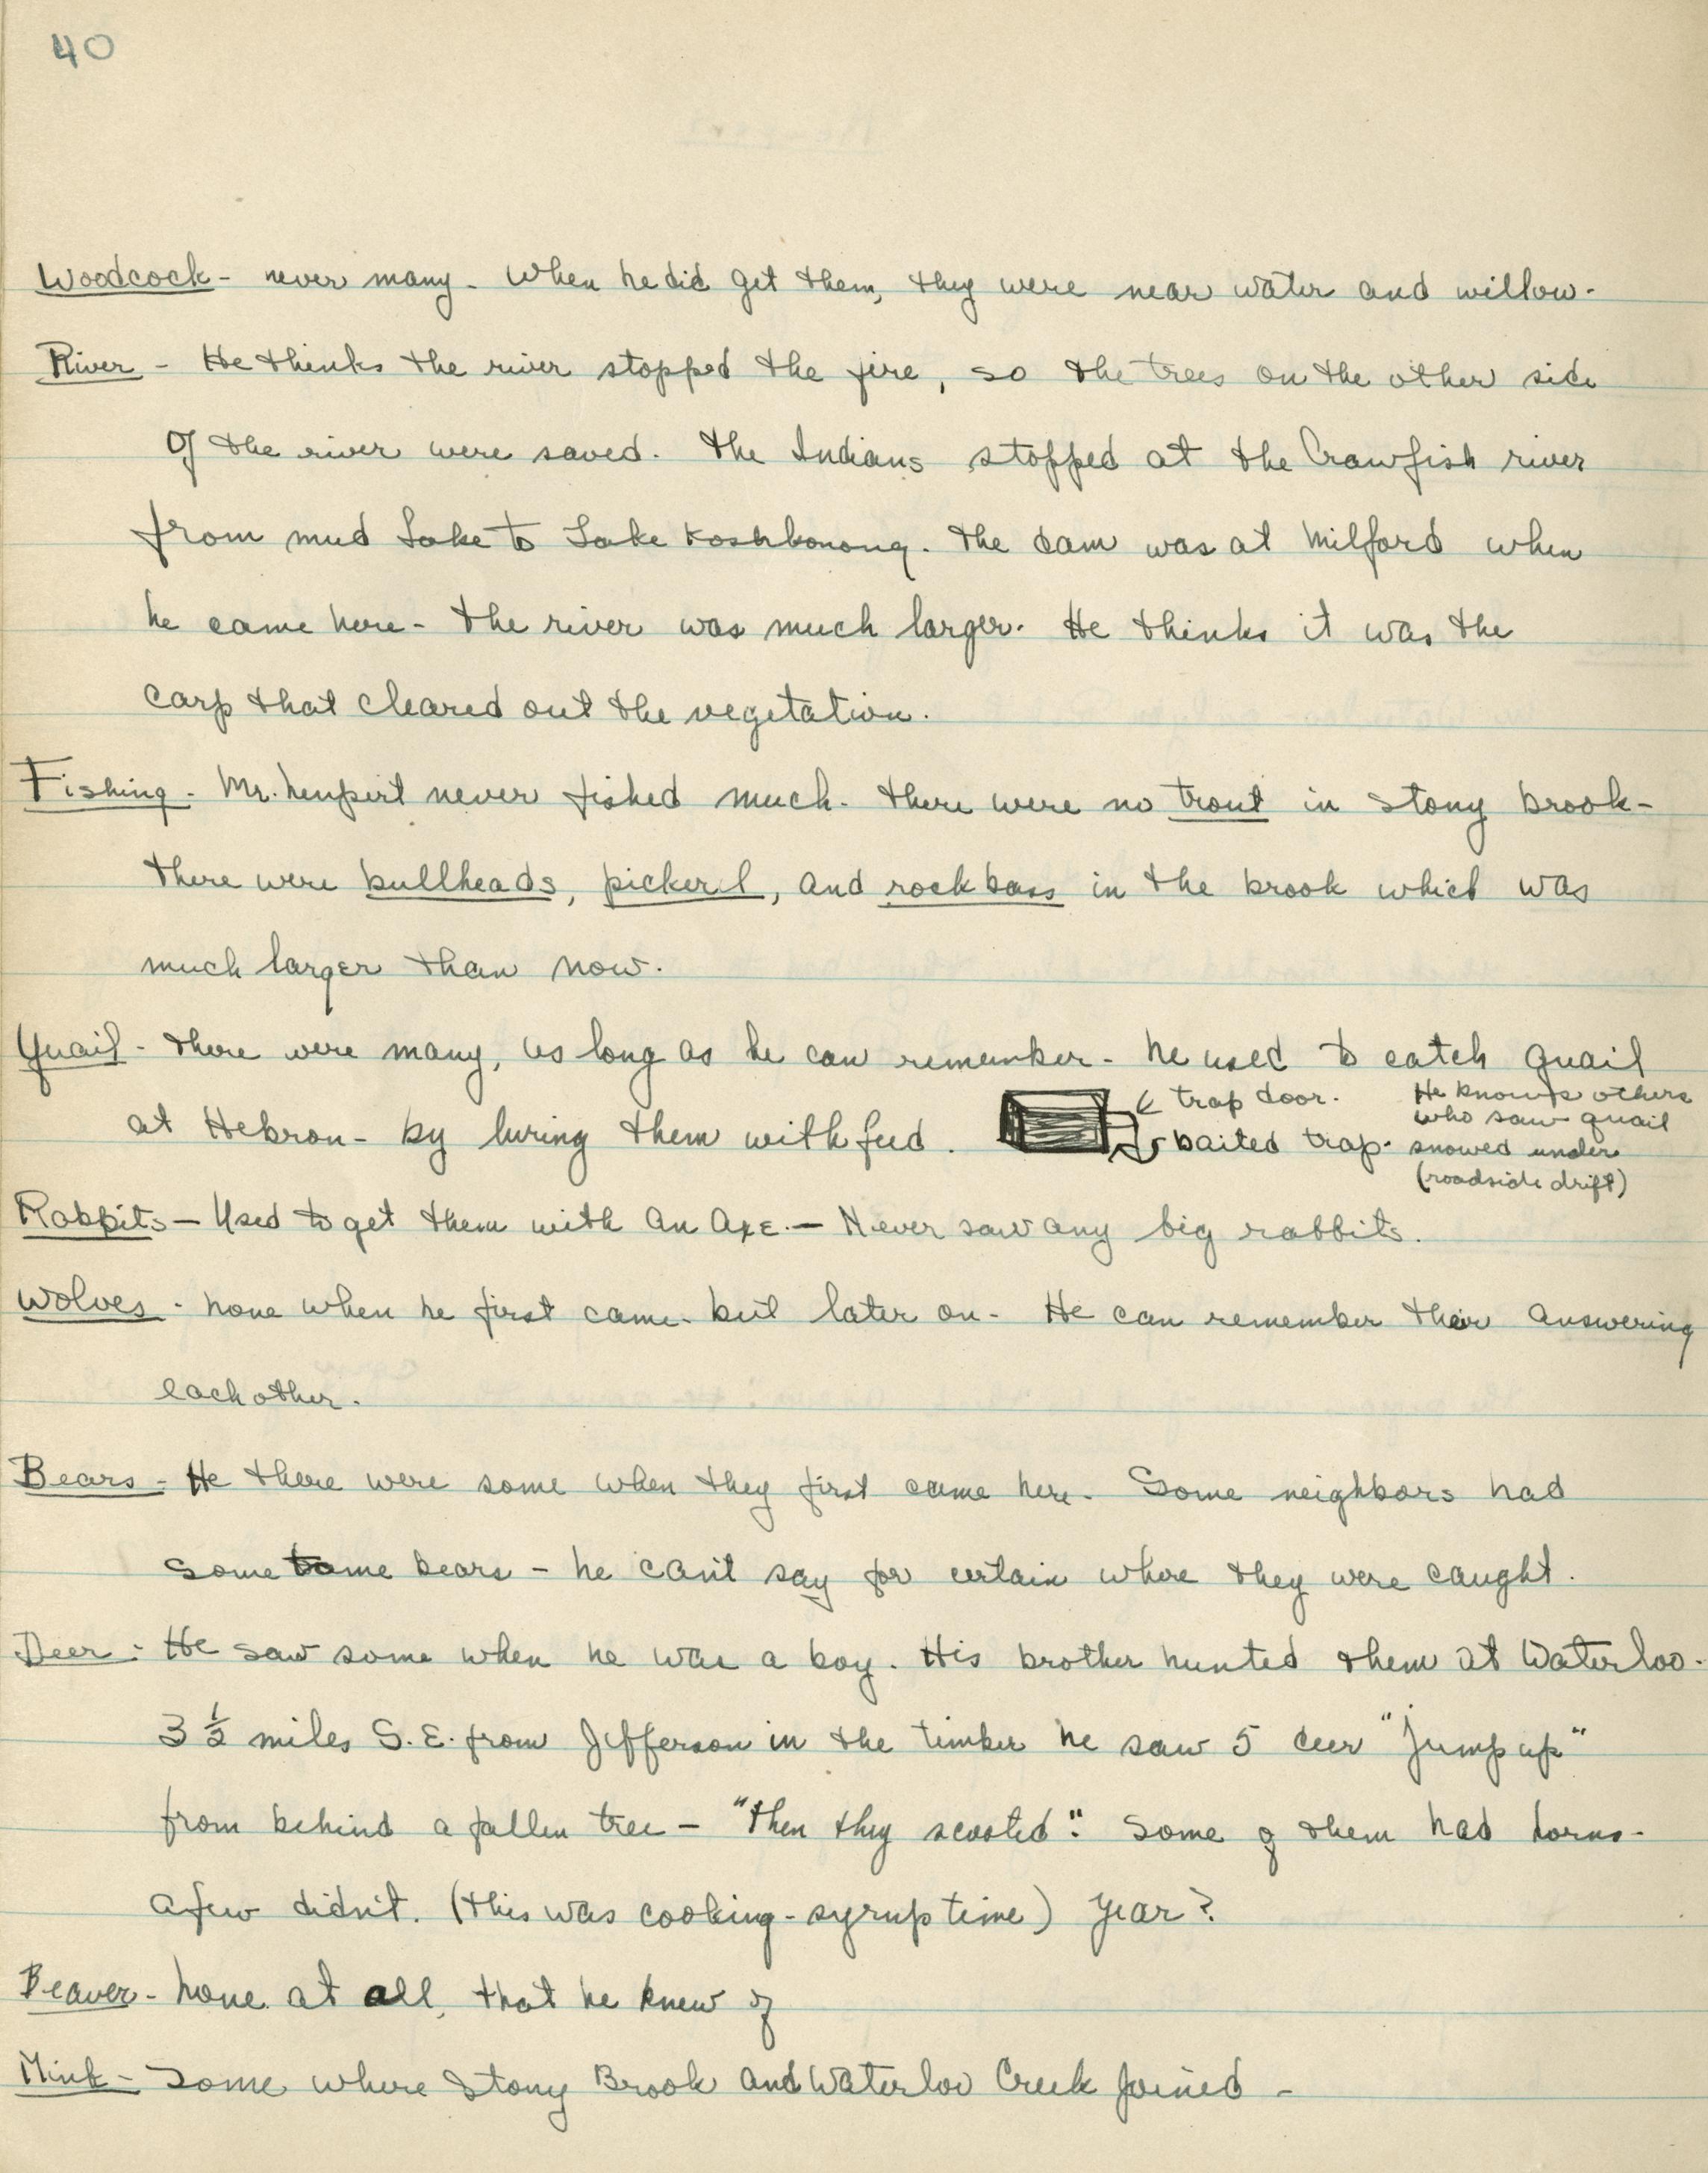 40
Woodcock - never many - When he did get them, they were near water and willow.
River - He thinks the river stopped the fire, so the trees on the other side
of the river were saved. The Indians stopped at the Crawfish river
from mud Lake to Lake Koshkonong. The dam was at Milford when
he came here - the river was much larger. He thinks it was the
carp that cleared out the vegetation.
Fishing - Mr. never fished much. There were no trout in Stony brook -
there were bullheads, pickerl, and rock bass in the brook which was
much larger than now.
Quail - there were many, as long as he can remember - he used to catch quail
at Hebron - by luring them with feed.
trap door.
baited trap.
He knows others
who saw quail
snowed under
(roadside drift)
Rabbits - Used to get them with an axe. - Never saw any big rabbits.
Wolves - none when he first came - but later on - He can remember their answering
each other.
Bears - He there were some when they first came here - Some neighbors had
some tame bears - he can't say for certain where they were caught.
Deer - He saw some when he was a boy. His brother hunted them at Waterloo -
3 1/2 miles S.E. from Jefferson in the timber he saw 5 deer "jump up"
from behind a fallen tree - "Then they scooted". Some of them had horns -
a few didn't. (this was cooking - syrup time) Year?
Beaver - None at all, that he knew of
Mink - Some where Stony Brook and Waterloo Creek joined -